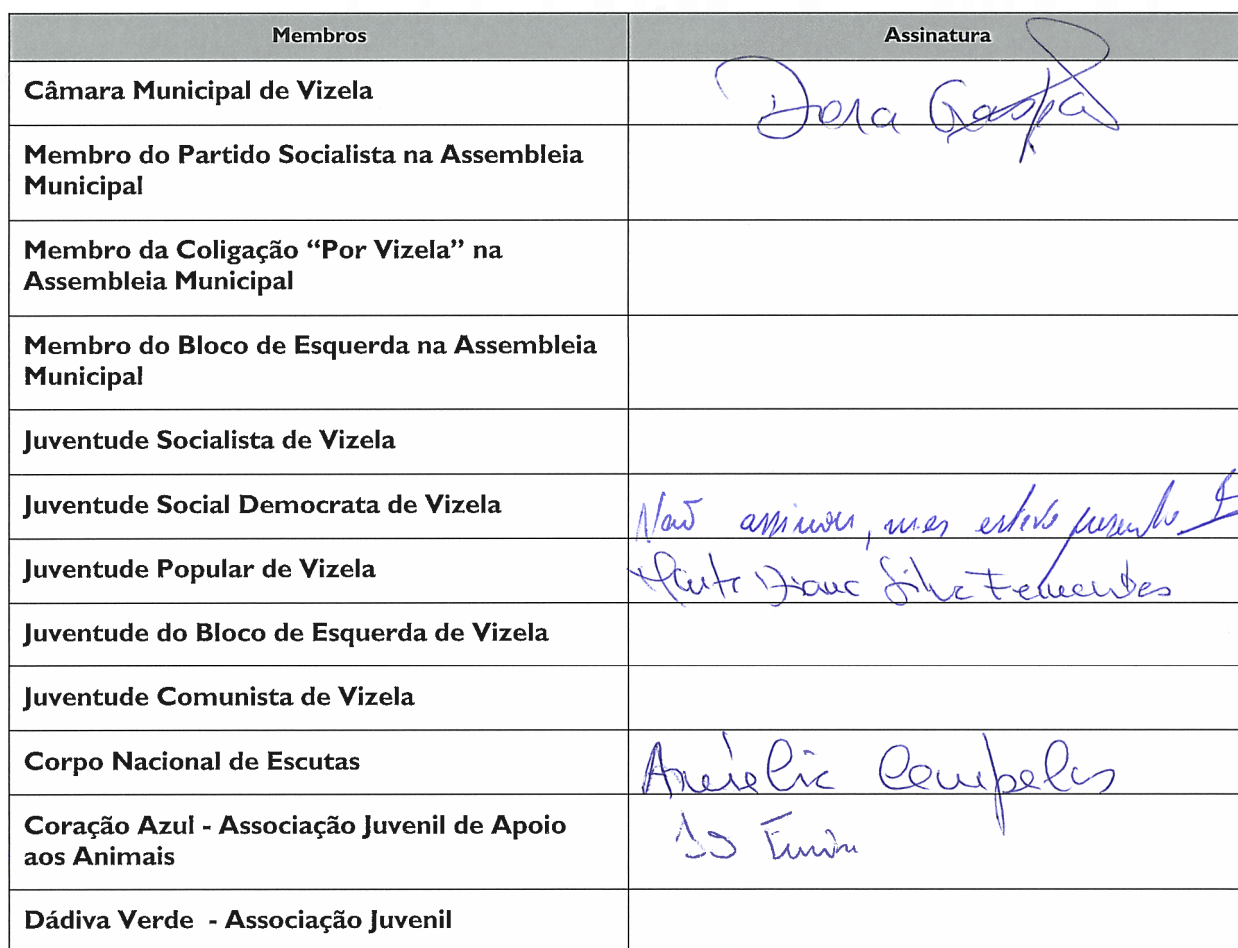 Membros Assinatura
Câmara Municipal de Vizela Dora Gaspar
Membro do Partido Socialista na Assembleia
Municipal
Membro da Coligação “Por Vizela” na
Assembleia Municipal
Membro do Bloco de Esquerda na Assembleia
Municipal
Juventude Socialista de Vizela
Juventude Social Democrata de Vizela Não assinou, mas esteve presente
Juventude Popular de Vizela Silva Fernandes
Juventude do Bloco de Esquerda de Vizela
Juventude Comunista de Vizela
Corpo Nacional de Escutas Campelos
Coração Azul - Associação Juvenil de Apoio
aos Animais
Dádiva Verde - Associação Juvenil